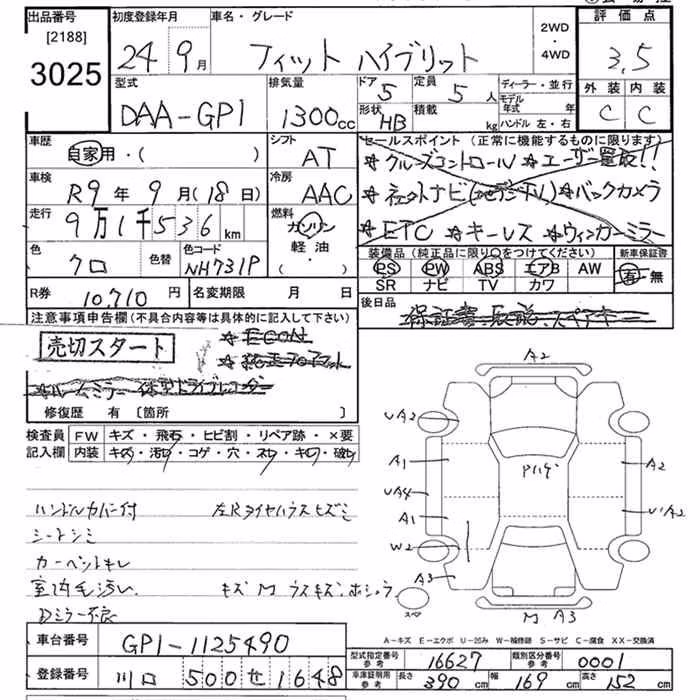 出品番号 初度登録年月 車名・グレード 2WD・4WD 評価点
[2188]
3025 24年9月 フィット ハイブリット 3.5
型式 排気量 ドア 5 定員 5人 ディーラー・並行 外装 内装
DAA-GP1 1300cc 形状 HB 積載 kg モデル年式 年 C C
ハンドル 左・右
車歴 シフト セールスポイント (正常に機能するものに限ります)
自家用・( ) AT ☆クルーズコントロール ☆ユーザー買取!!
車検 冷房
R9年9月(18日) AAC ☆バックカメラ
走行 燃料 ☆ETC ☆キーレス ☆ウィンカーミラー
9万1千536km ガソリン
軽油
( )
色 色替 色コード 装備品 (純正品に限り○をつけてください) 新車保証書
クロ NH731P PS PW ABS エアB AW 有・無
SR ナビ TV カワ
R券 10,710円 名変期限 月 日 後日品
注意事項申告欄(不具合内容等は具体的に記入して下さい) 保証書
売切スタート ☆ECON
修復歴 有 [箇所 ]
検査員 FW キズ・飛石・ヒビ割・リペア跡・×要
記入欄 内装 キズ・汚れ・コゲ・穴・スレ・キレ・破れ
ハンドルカバー付 左Rタイヤハウスヒズミ
シートシミ
カーペットキレ
室内毛汚い キズ M ウスキズ
Dミラー不良
A2
UA2
A1 Pハゲ A2
UA4
A1 U1A2
W2
A3
スペア M A3
A-キズ E-エクボ U-凹み W-補修跡 S-サビ C-腐食 XX-交換済
車台番号 GP1-1125490
型式指定番号 参考 16627 類別区分番号 参考 0001
登録番号 川口 500 せ 1648
車庫証明用 参考 長さ 390cm 幅 169cm 高さ 152cm